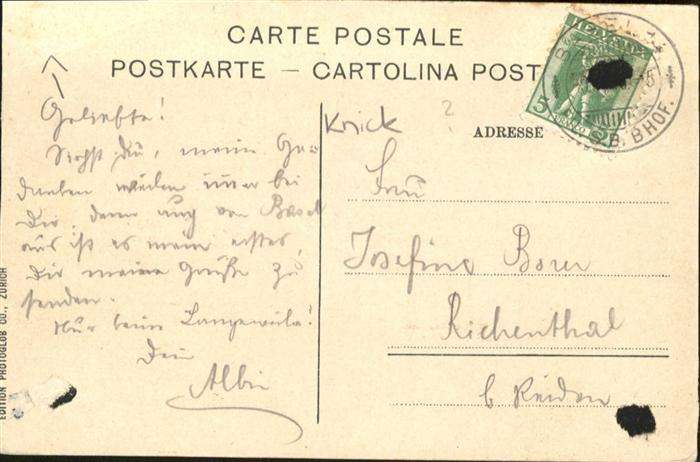 CARTE POSTALE
POSTKARTE — CARTOLINA POST
HELVETIA
5
B. BHOF.
Knick
?
ADRESSE
Geliebte!
Siehst Du, meine Ge-
danken weilen immer bei
Dir, denn auch von Basel
aus ist es mein erstes,
Dir meine Grüße zu
senden.
Nur keine Langeweile!
Dein
Albin
Frau
Josefine Borer
Richenthal
b Reiden
EDITION PHOTOGLOB CO., ZÜRICH